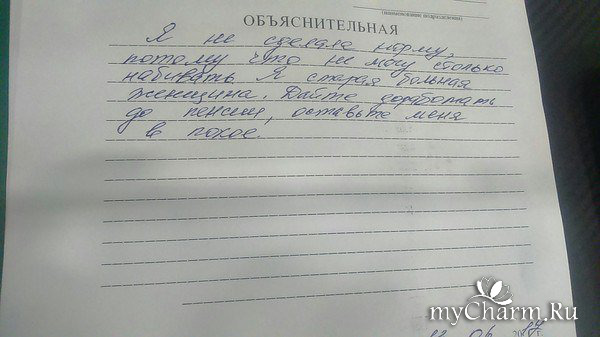 (наименование подразделения)
ОБЪЯСНИТЕЛЬНАЯ
Я не сделала норму,
потому что не могу столько
набивать Я старая больная
женщина. Дайте доработать
до пенсии, оставьте меня
в покое.
myCharm.Ru